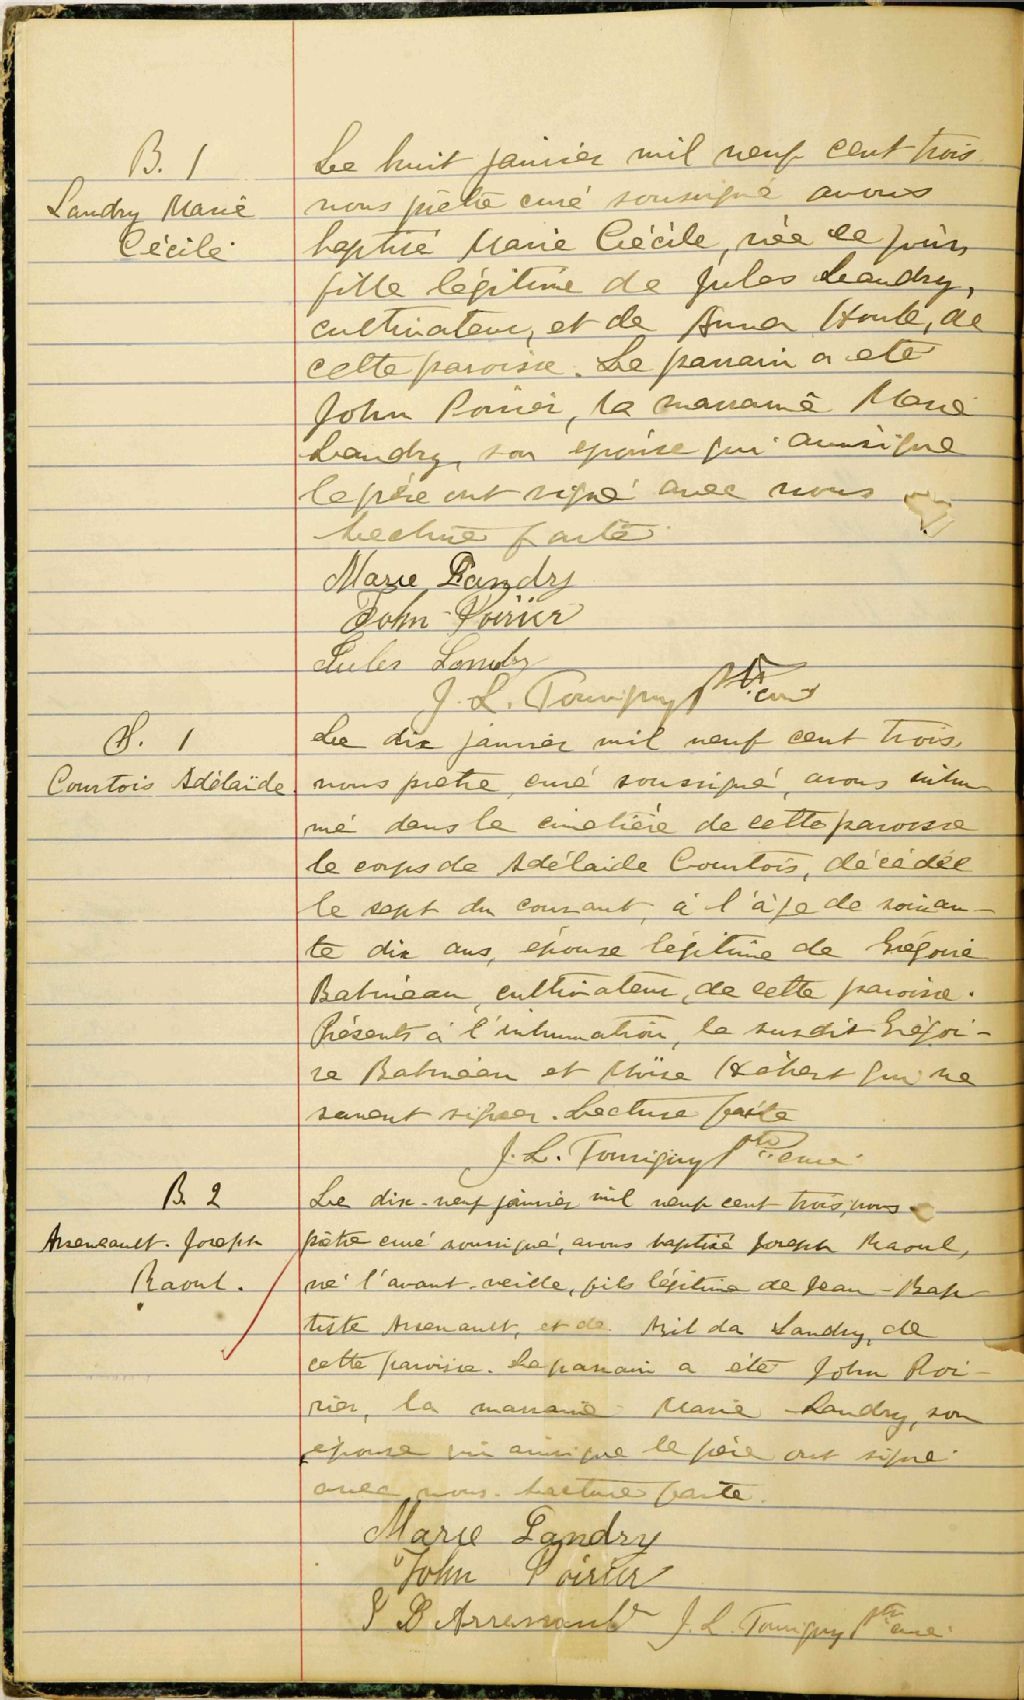 B. 1
Landry Marie
Cécile
Le huit janvier mil neuf cent trois
nous prêtre curé soussigné avons
baptisé Marie Cécile, née ce jour,
fille légitime de Jules Landry,
cultivateur, et de Anna Houle, de
cette paroisse. Le parrain a ete
John Poirier, la marraine Marie
Landry, son epouse qui ainsique
le père ont signé avec nous
Lecture faite
Marie Landry
John Poirier
Jules Landry
J. L. Tourigny Ptre curé
S. 1
Courtois Adélaïde
Le dix janvier mil neuf cent trois,
nous pretre curé soussigné, avons inhu-
mé dans le cimetière de cette paroisse
le corps de Adélaide Courtois, décédée
le sept du courant, à l'âge de soixan-
te dix ans, épouse légitime de Grégoire
Babineau, cultivateur, de cette paroisse.
Présents à l'inhumation, le susdit Grégoi-
re Babineau et Moïse Hébert qui ne
savent signer. Lecture faite
J. L. Tourigny Ptre curé
B. 2
Arseneault Joseph
Raoul.
Le dix-neuf janvier mil neuf cent trois, nous
prêtre curé soussigné, avons baptisé Joseph Raoul,
né l'avant-veille, fils légitime de Jean-Bap-
tiste Arsenault, et de Azilda Landry, de
cette paroisse. Le parrain a été John Poi-
rier, la marraine Marie Landry, son
épouse qui ainsi que le père ont signé
avec nous. Lecture faite.
Marie Landry
John Poirier
J B Arsenault J. L. Tourigny Ptre curé